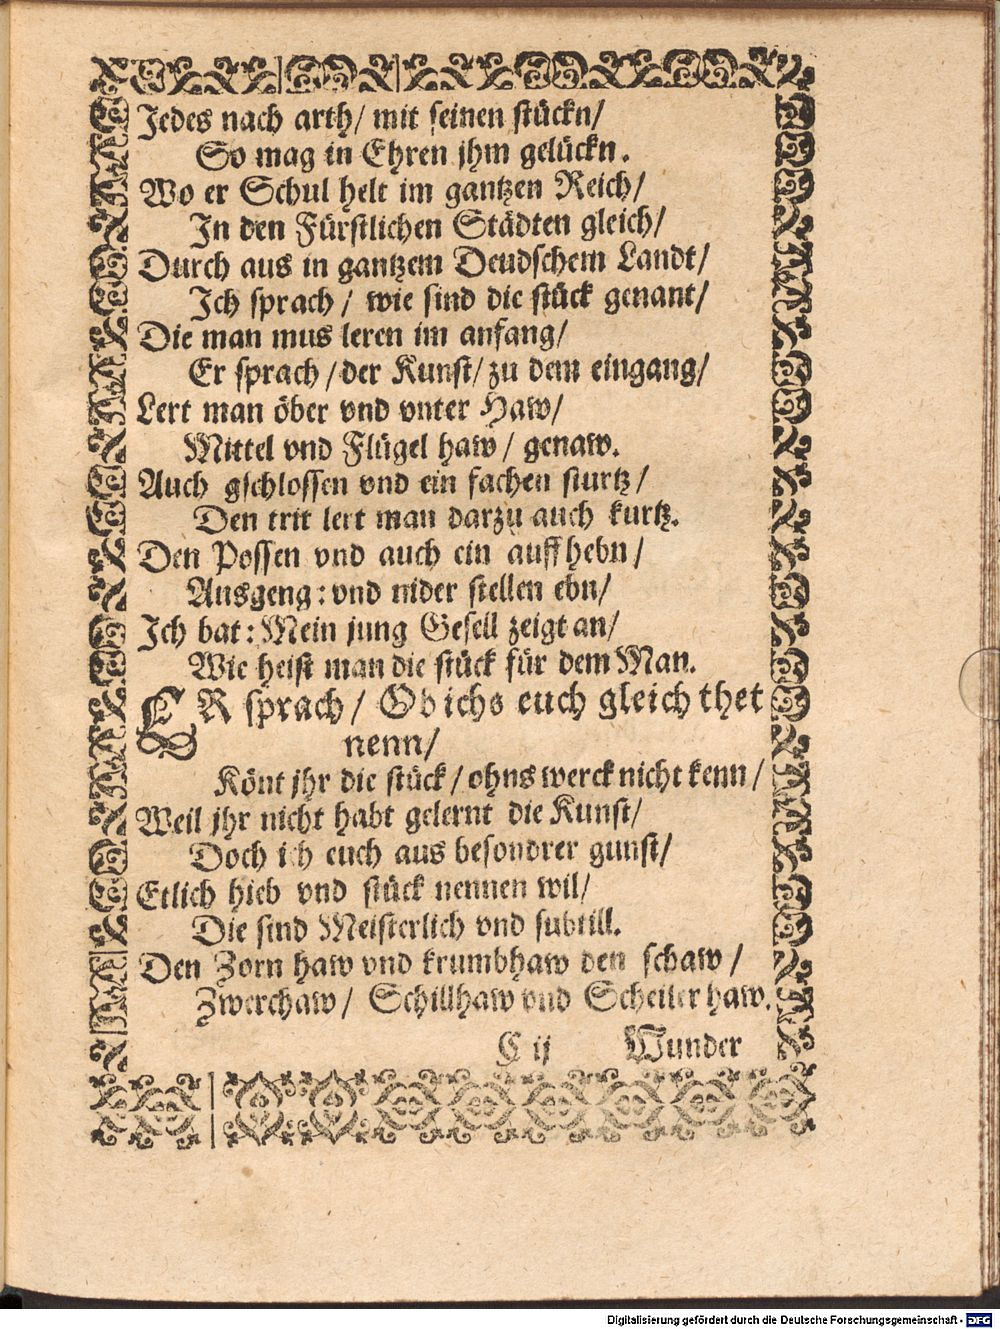 Jedes nach arth/ mit seinen stückn/
So mag in Ehren jhm gelückn.
Wo er Schul helt im gantzen Reich/
In den Fürstlichen Städten gleich/
Durch aus in gantzem Deudschem Landt/
Ich sprach / wie sind die stück genant/
Die man mus leren im anfang/
Er sprach /der Kunst/ zu dem eingang/
Lert man öber vnd vnter Haw/
Mittel vnd Flügel haw / genaw.
Auch gschlossen vnd ein fachen sturtz /
Den trit lert man darzu auch kurtz.
Den Possen vnd auch ein auff hebn /
Ausgeng: vnd nider stellen ebn/
Ich bat: Mein jung Gesell zeigt an/
Wie heist man die stück für dem Man.
ER sprach / Ob ichs euch gleich thet
nenn/
Könt jhr die stück / ohns werck nicht kenn /
Weil jhr nicht habt gelernt die Kunst/
Doch ich euch aus besondrer gunst/
Etlich hieb vnd stück nennen wil/
Die sind Meisterlich vnd subtill.
Den Zorn haw vnd krumbhaw den schaw /
Zwerchaw / Schillhaw vnd Scheiler haw.
C ij Wunder
Digitalisierung gefördert durch die Deutsche Forschungsgemeinschaft - DFG